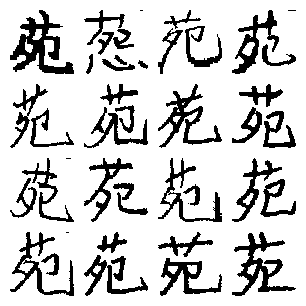 苑葱苑苑
苑苑苑苑
苑苑苑苑
苑苑苑苑